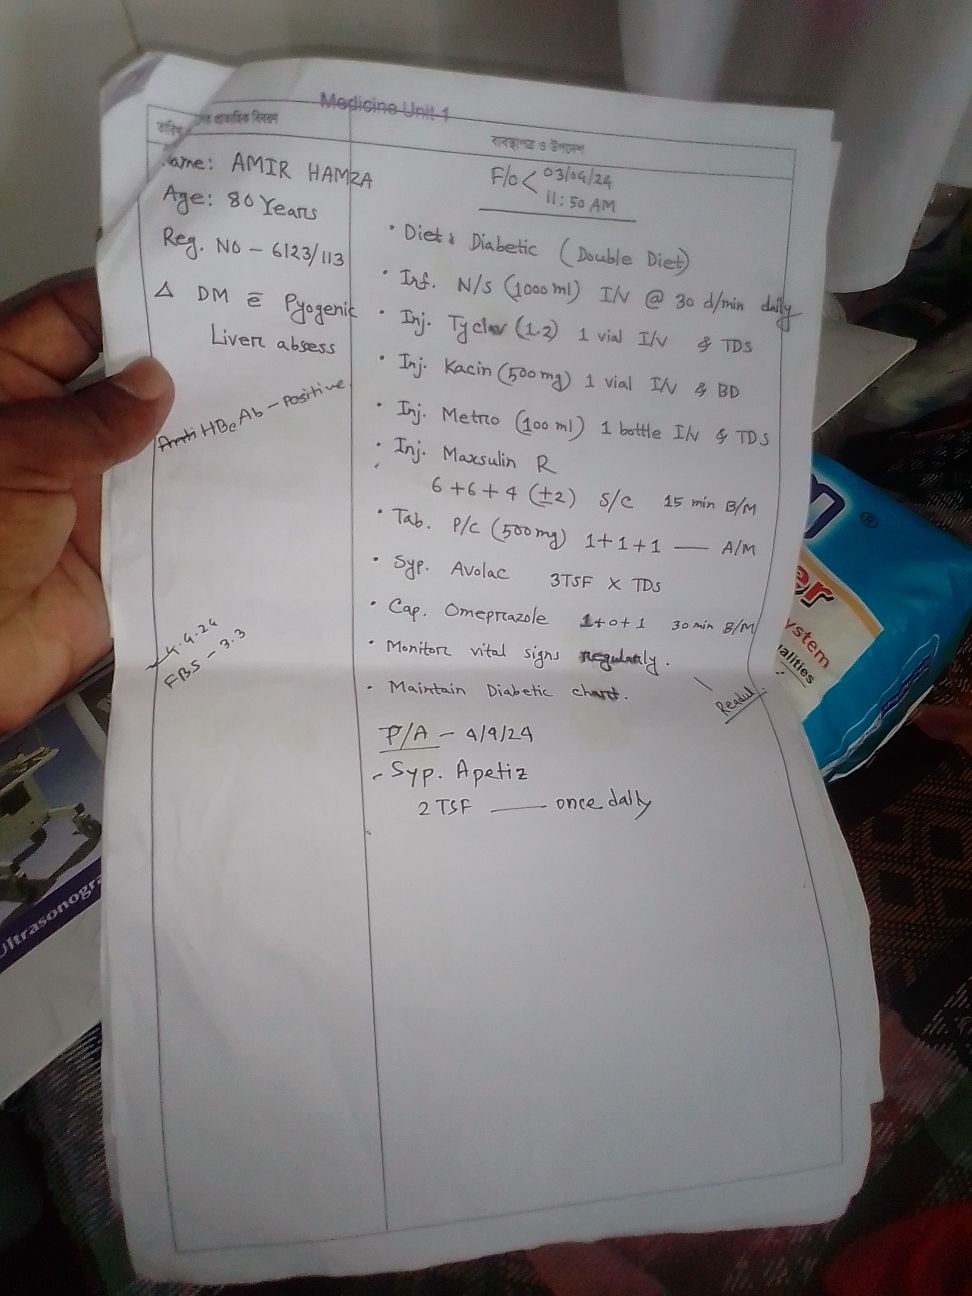 Medicine Unit 1
বিবরণ
ব্যবস্থাপত্র ও উপদেশ
Name: AMIR HAMZA
Age: 80 Years
Reg. NO - 6123/113
Δ DM c̄ Pyogenic
Liver absess
HBc Ab - Positive
4.4.24
FBS - 3.3
F/O < 03/04/24
11:50 AM
• Diet: Diabetic (Double Diet)
• Inf. N/S (1000 ml) I/V @ 30 d/min daily
• Inj. Tyclav (1.2) 1 vial I/V & TDS
• Inj. Kacin (500 mg) 1 vial I/V & BD
• Inj. Metro (100 ml) 1 bottle I/V & TDS
• Inj. Maxsulin R
6 + 6 + 4 (±2) S/C 15 min B/M
• Tab. P/C (500 mg) 1+1+1 — A/M
• Syp. Avolac 3TSF X TDS
• Cap. Omeprazole 1+0+1 30 min B/M
• Monitor vital signs regularly.
• Maintain Diabetic chart.
P/A - 4/4/24
- Syp. Apetiz
2 TSF — once daily
Ultrasonogra
®
er
ystem
alities